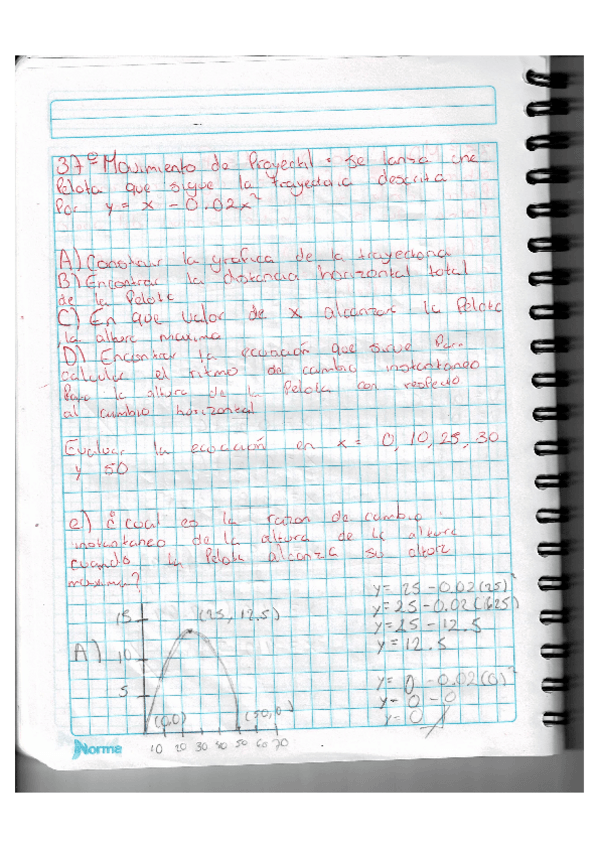 37º Movimiento de Proyectil = Se lanza una
Pelota que sigue la trayectoria descrita
Por y = x - 0.02x²
A) Construir la grafica de la trayectoria
B) Encontrar la distancia horizontal total
de la Pelota
C) En que valor de x alcanzar la Pelota
la altura maxima
D) Encontrar la ecuación que sirve Para
calcular el ritmo de cambio instantaneo
Para la altura de la Pelota con respecto
al cambio horizontal
Evaluar la ecuación en x = 0, 10, 25, 30
y 50
e) ¿cual es la razon de cambio
instantaneo de la altura de la altura
cuando la Pelota alcanza su altura
maxima?
y = 25 - 0.02(25)²
y = 25 - 0.02(625)
y = 25 - 12.5
y = 12.5
y = 0 - 0.02(0)²
y = 0 - 0
y = 0
A)
15
10
5
(25, 12.5)
(0,0)
(50,0)
10 20 30 40 50 60 70
Norma